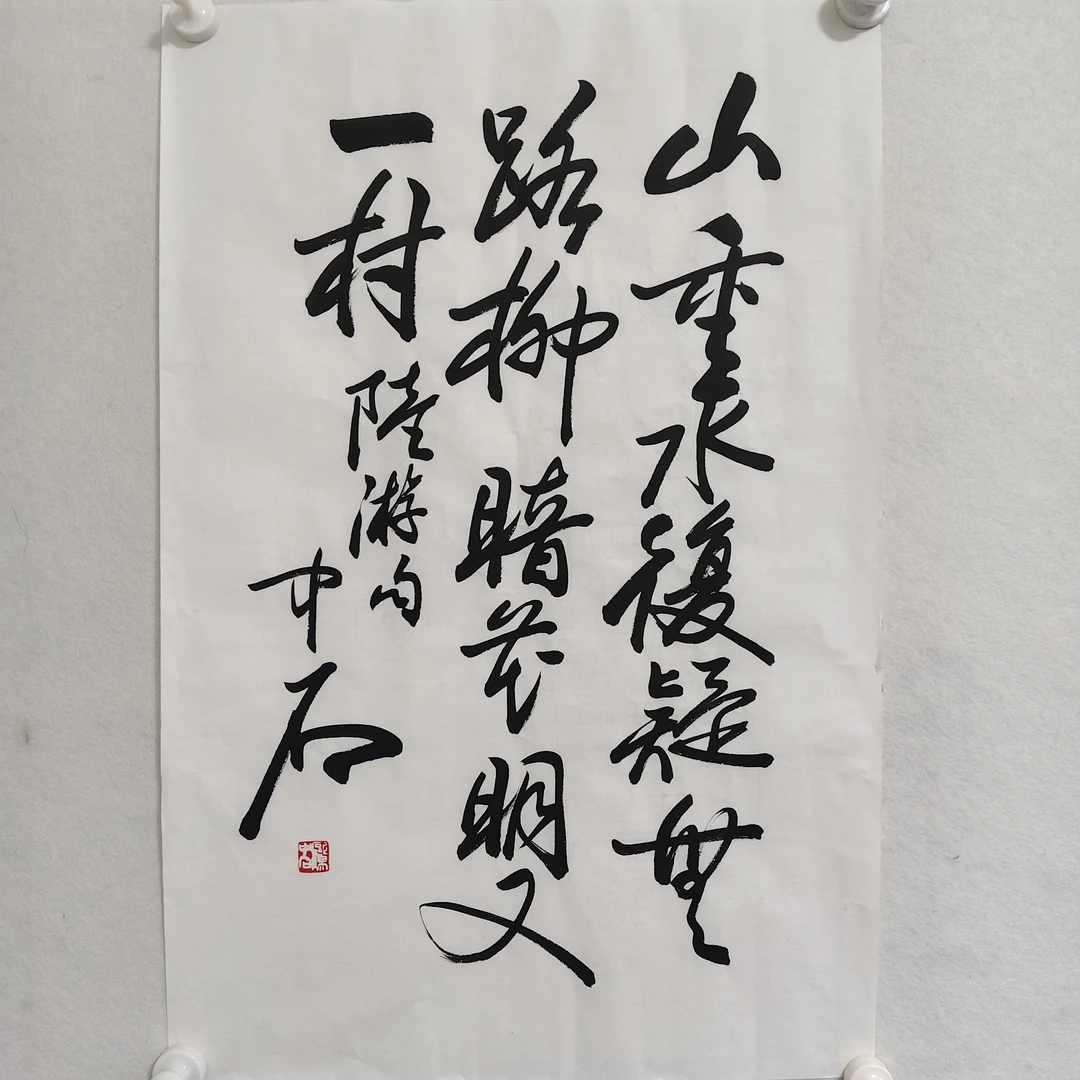 山重水複疑無
路柳暗花明又
一村 陸游句
中石